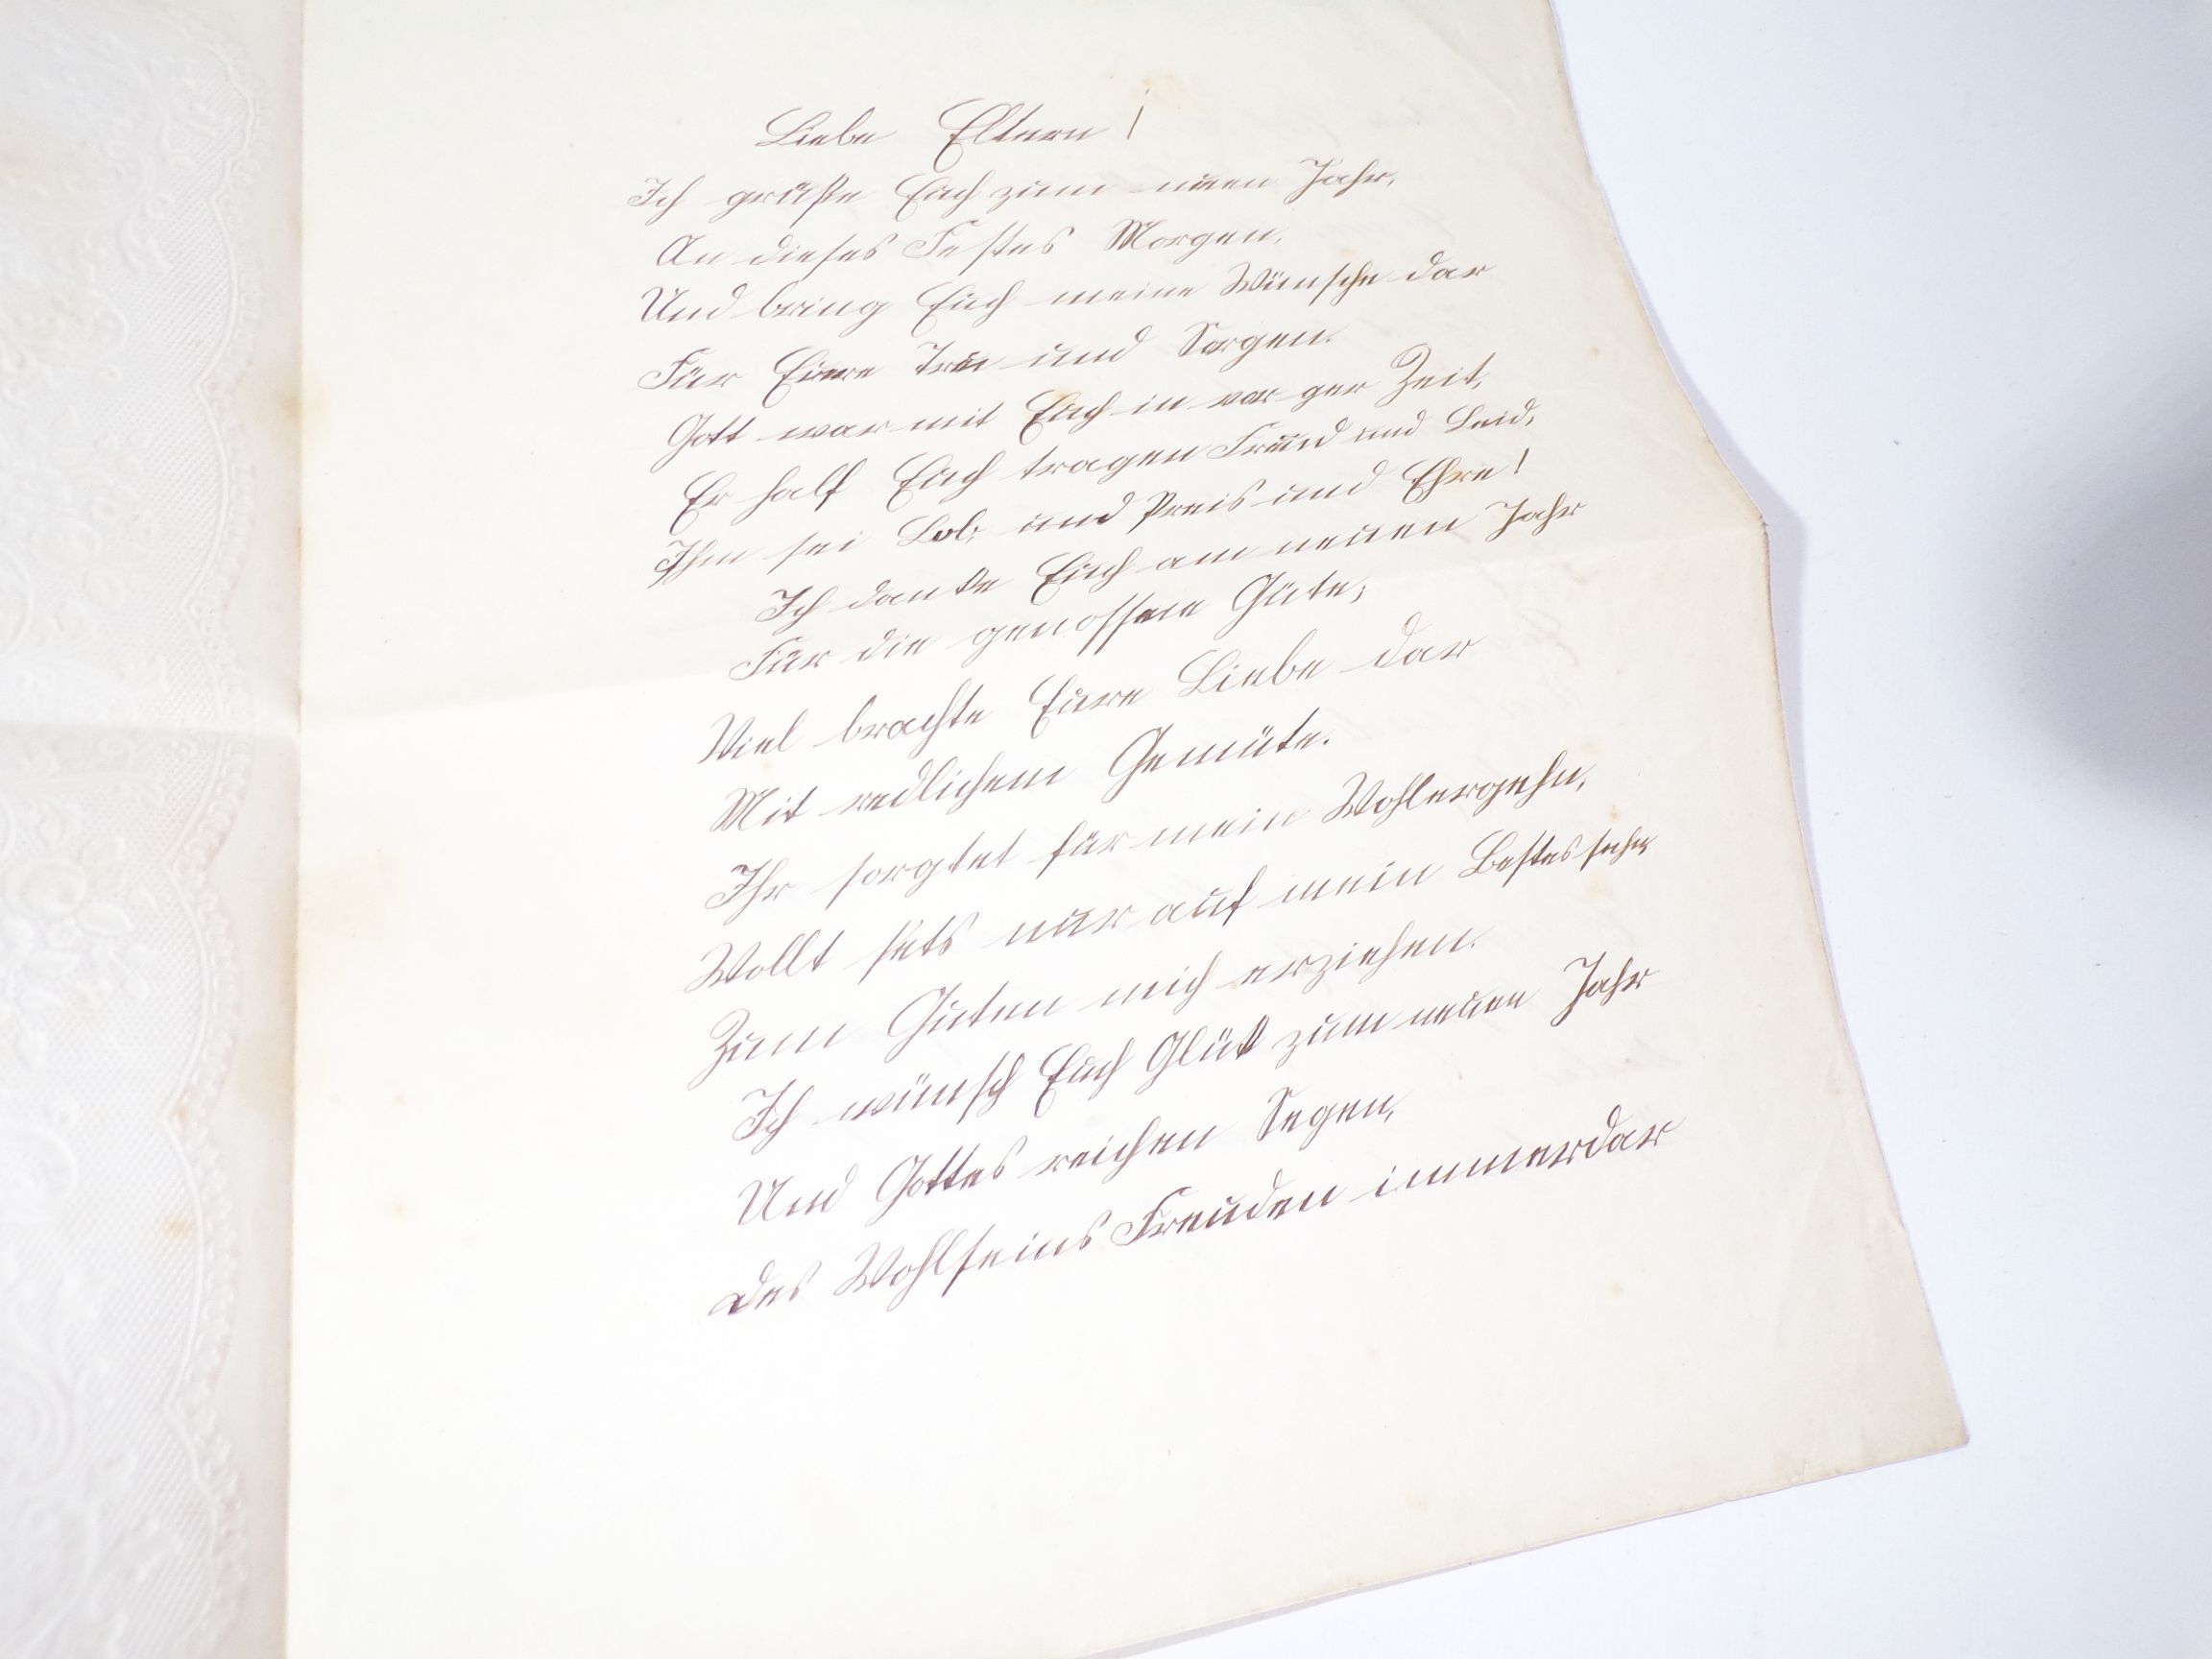 Liebe Eltern!
Ich grüße Euch zum neuen Jahr,
An dieses Festes Morgen,
Und bring Euch meine Wünsche dar
Für Eure Treu und Sorgen.
Gott war mit Euch in vor ger Zeit,
Er half Euch tragen Freud und Leid,
Ihm sei Lob, und Preis und Ehre!
Ich danke Euch am neuen Jahr
Für die genossene Güte;
Viel brachte Eure Liebe dar
Mit redlichem Gemüte.
Ihr sorgtet für mein Wohlergehn,
Wollt stets nur auf mein Bestes sehn
Zum Guten mich erziehen.
Ich wünsch Euch Glük zum neuen Jahr
Und Gottes reichen Segen,
des Wohlseins Freuden immerdar